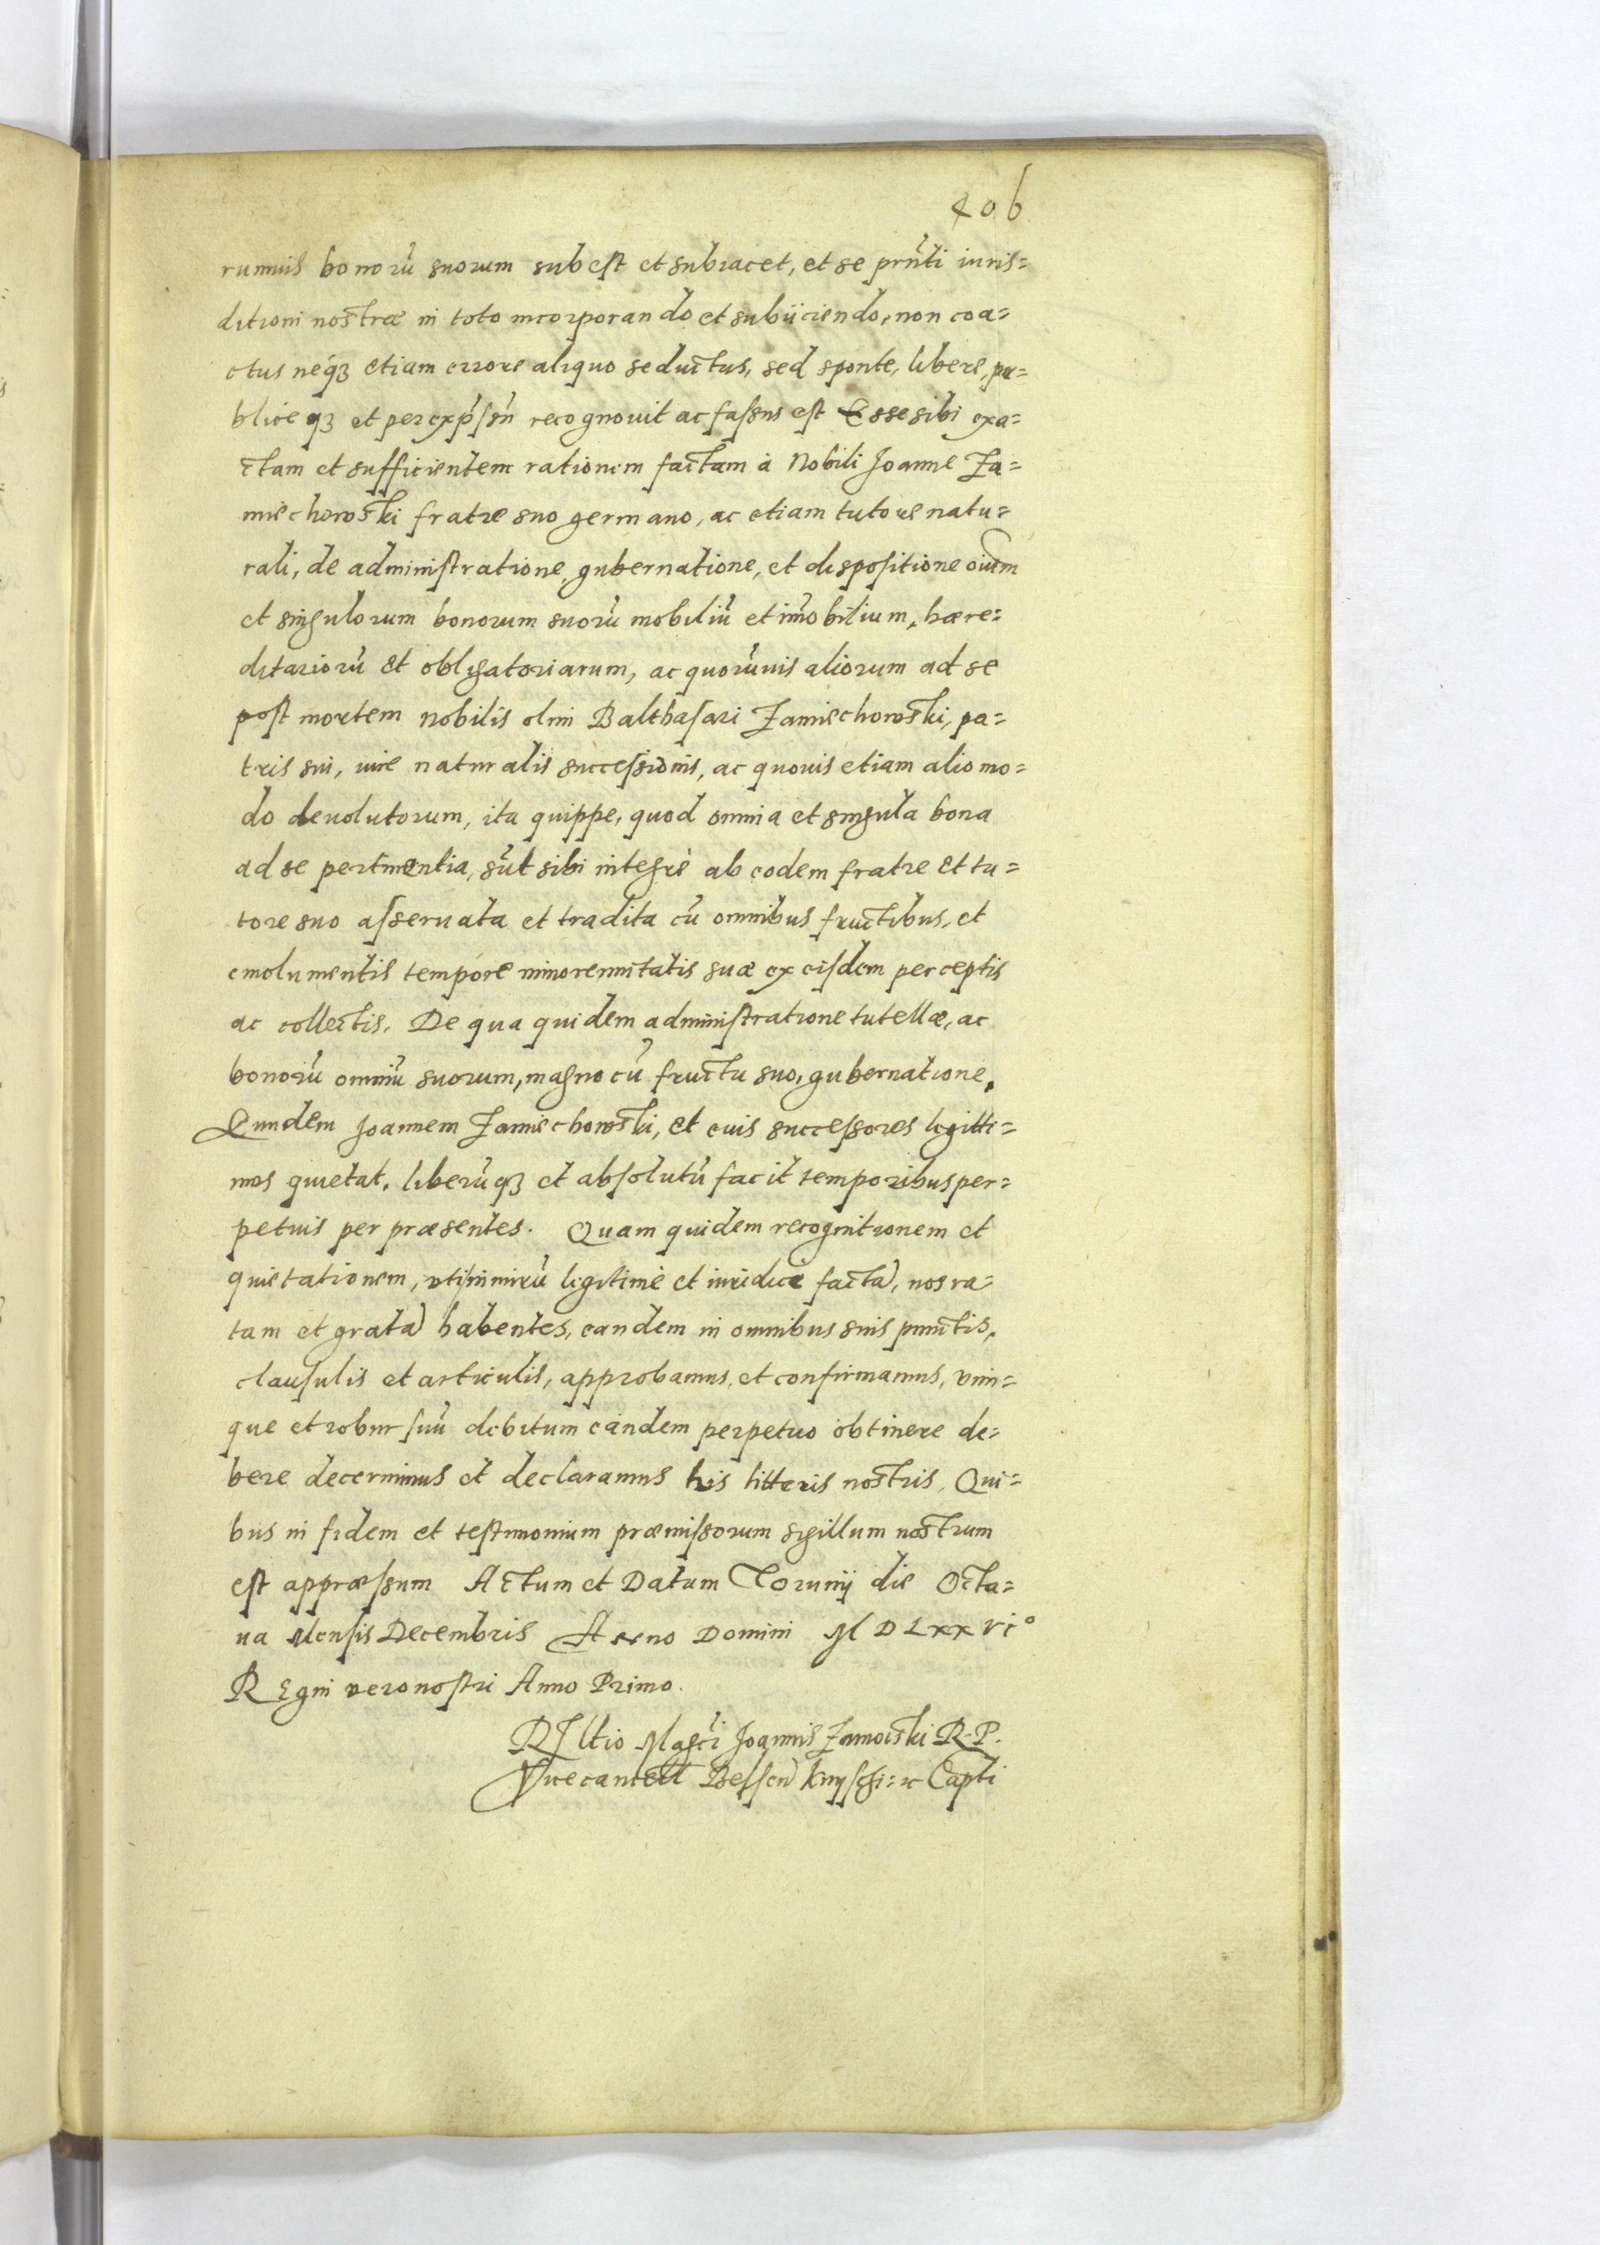 406
rumuis bonorū suorum subest et subiacet, et se prn̄ti iuris=
ditioni nostræ in toto incorporando et subiiciendo, non coa=
ctus neqȝ etiam errore aliquo seductus, sed sponte, libere, pu=
blice qȝ et per exp̄ssū recognouit ac fassus est Esse sibi exa=
ctam et sufficientem rationem factam à Nobili Joanne Za=
miechowski fratre suo germano, ac etiam tutore natu=
rali, de administratione, gubernatione, et dispositione oium
et singulorum bonorum suorū mobiliū et im̄obilium, hære=
ditariorū et obligatoriarum, ac quorūuis aliorum ad se
post mortem nobilis olim Balthasari Zamiechowski, pa=
tris sui, iure naturalis successionis, ac quouis etiam alio mo=
do deuolutorum, ita quippe, quod omnia et singula bona
ad se pertinentia, sūt sibi integrè ab eodem fratre et tu=
tore suo asseruata et tradita cū omnibus fructibus, et
emolumentis tempore minorennitatis suæ ex eisdem perceptis
ac collectis. De qua quidem administratione tutellæ, ac
bonorū omniū suorum, magno cū fructu suo, gubernatione.
Eundem Joannem Zamiechowski, et euis successores legitti=
mos quietat, liberūqȝ et absolutū facit temporibus per=
petuis per præsentes. Quam quidem recognitionem et
quietationem, uti nimirū legitimè et iuridicè factā, nos ra=
tam et gratā habentes, eandem in omnibus suis punctis,
clausulis et articulis, approbamus, et confirmamus, vim=
que et robur suū debitum eandem perpetuo obtinere de=
bere decernimus et declaramus his litteris nostris, Qui=
bus in fidem et testimonium præmissorum sigillum nostrum
est appræssum Actum et Datum Torunij die Octa=
ua Mensis Decembris Anno Domini M D LXX VI°
REgni vero nostri Anno Primo.
Rltio Mag̅ci Joannis Zamoiski R. P.
Vicecancell Belsen̄ Knyschi= ꝛc Capti